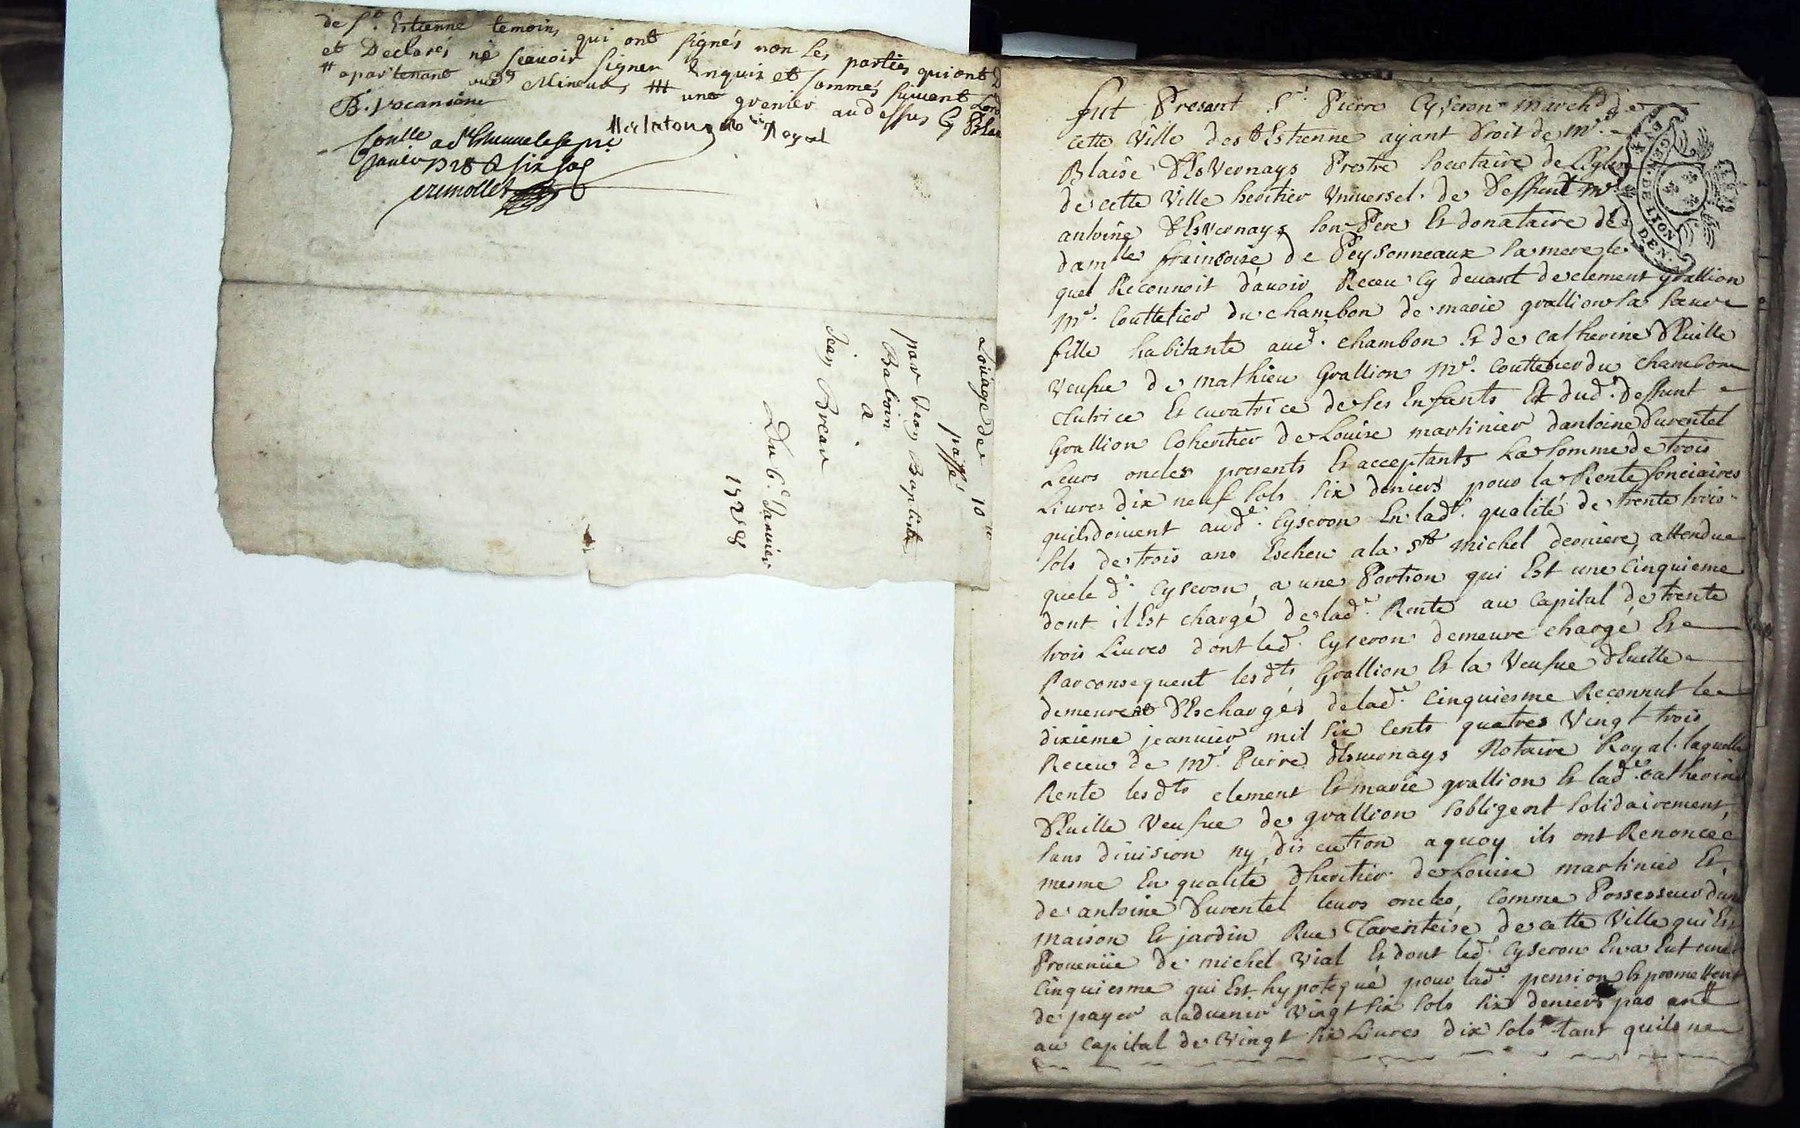 de St. Estienne temoins qui ont signés non les parties qui ont
et Declarés ne scavoir signer Enquis et sommés suivent
# apartenant auxd. Mineurs ## une grenier au dessus
B. Vocanson
Merlaton no.re Royal
Conlle a St Etienne le sept
Janvier 1728 R six sols
Louage de 10 ll
passé
par Jean Baptiste
Baleoin
a
Jean Breau
Du 6.e Janvier
1728
fut Present Sr. Pierre Cyseron March.d de
cette Ville de St Estienne ayant droit de Mre.
Blaise DesVernays Prestre Societaire de L'Eglise
de cette Ville heritier Universel de deffunt Mr.
antoine DesVernays son Pere Et donataire de
dam.lle francoise de Peysonneaux sa mere le
quel Reconnoit d'avoir Receu Cy devant de clement grallion
Mr. Couttelier du chambon de marie grallion sa soeur
fille habitante aud. chambon Et de Catherine Dhuille
Veufve de mathieu Grallion Mr. Couttelier du Chambon
tutrice Et curatrice de ses Enfants Et dud. deffunt
Grallion Coheritier de Louise martinier d'antoine Durentel
Leurs oncles presents Et acceptants La somme de trois
Livres dix neuf sols six deniers pour la Rente fonciaires
quils doivent aud. Cyseron En lad. qualité de trente trois
sols de trois ans Escheu a la St. Michel derniere, attendue
que le d. Cyseron, a une Portion qui Est une Cinquieme
dont il Est chargé de lad. Rente au Capital de trente
trois Livres dont led. Cyseron demeure chargé, Et
Par consequent lesd.ts Grallion Et la Veufve Dhuille
demeurent Deschargés de lad. Cinquiesme Reconnut le
dixieme jeanvier mil six cents quatres Vingt trois
Receu de Mr. Pierre Desvernays Notaire Royal. laquelle
Rente lesd.ts clement Et marie grallion Et lad. catherine
Dhuille Veufve de grallion sobligent solidairement
sans division ny, discution a quoy ils ont Renoncéé
mesme En qualité D'heritier de Louise martinier Et,
de antoine Durentel leurs oncles, Comme Possesseur d'une
maison Et jardin Rue Tarenteise de cette Ville qui Est
Provenüe de michel Vial Et dont led. Cyseron En a Eut une
Cinquiesme qui Est hypotequé pour lad. pension Et promettent
de payer a l'advenir Vingt six sols six deniers par ant
au Capital de Vingt six Livres dix sols tant quils ne
GEN. DE LION